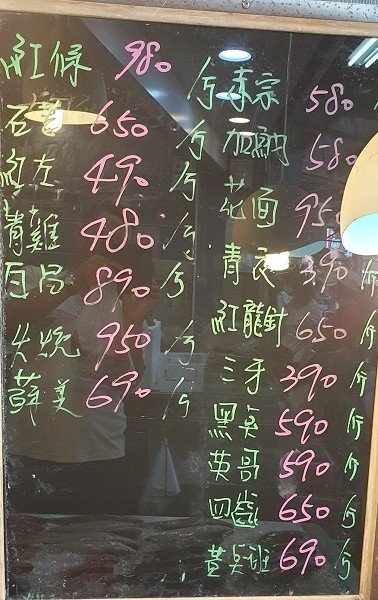 紅條 980 斤
石 650 斤
紅左 490 斤
青雞 480 斤
890 斤
950 斤
蘇美 690 斤
580
加納 580
花面 950
青衣 390 斤
紅龍針 650 斤
三牙 390 斤
黑貞 590 斤
英哥 590 斤
四齒 650 斤
黃貞班 690 斤